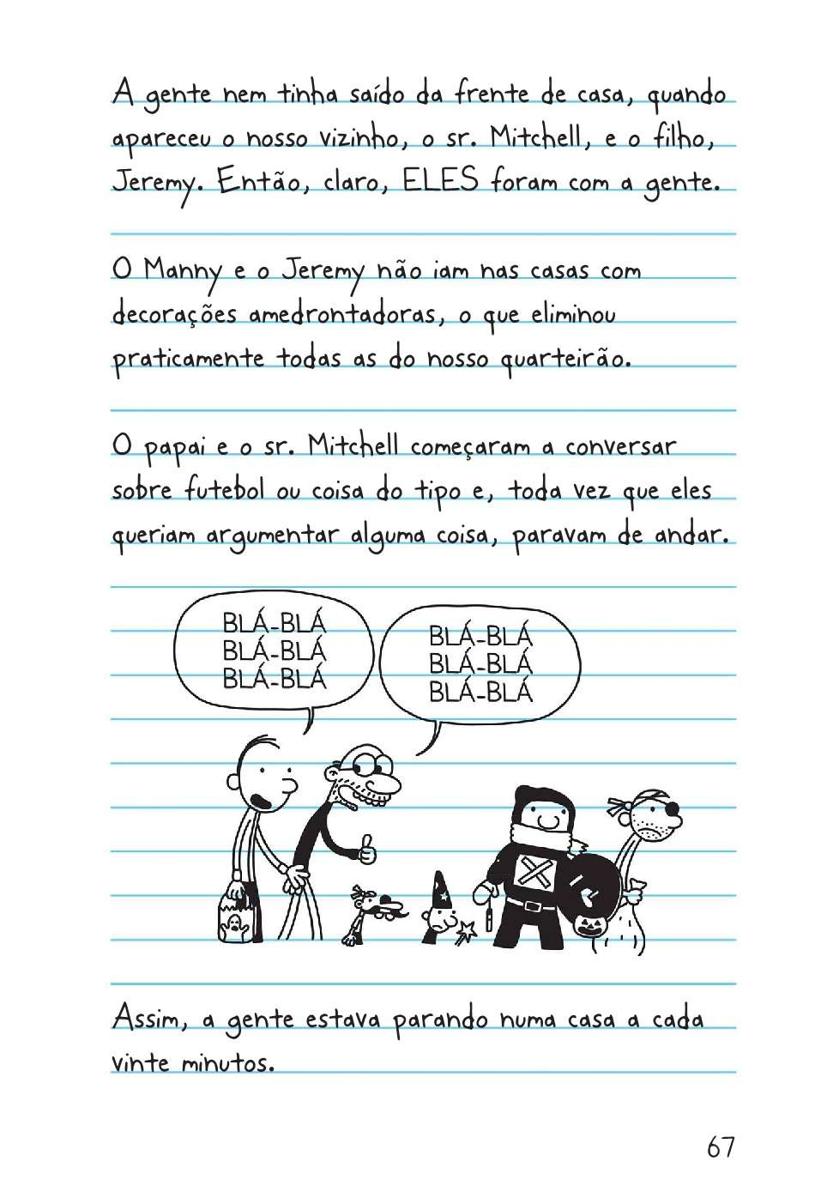 A gente nem tinha saído da frente de casa, quando
apareceu o nosso vizinho, o sr. Mitchell, e o filho,
Jeremy. Então, claro, ELES foram com a gente.
O Manny e o Jeremy não iam nas casas com
decorações amedrontadoras, o que eliminou
praticamente todas as do nosso quarteirão.
O papai e o sr. Mitchell começaram a conversar
sobre futebol ou coisa do tipo e, toda vez que eles
queriam argumentar alguma coisa, paravam de andar.
BLÁ-BLÁ
BLÁ-BLÁ
BLÁ-BLÁ
BLÁ-BLÁ
BLÁ-BLÁ
BLÁ-BLÁ
Assim, a gente estava parando numa casa a cada
vinte minutos.
67